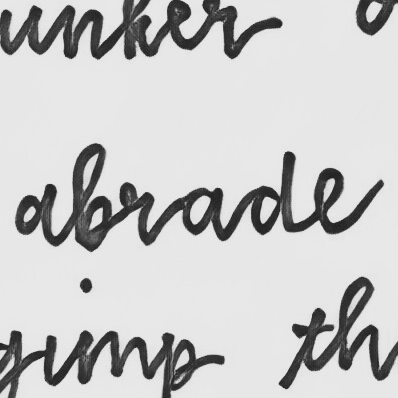 unker
abrade
gimp th